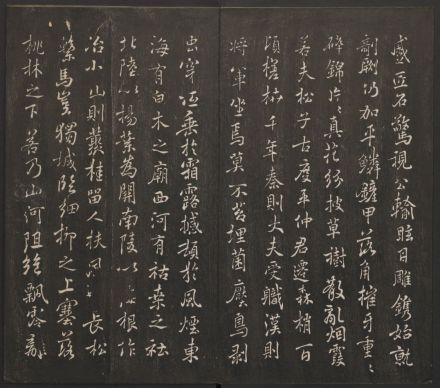 蹙匠石驚視公輸眩目雕鐫始就
剞劂仍加平鱗鏟甲落角摧牙重〻
碎錦片〻真花紛披草樹散亂烟霞
若夫松子古度平仲君遷森梢百
頃槎枿千年秦則大夫受職漢則
將軍坐焉莫不苔埋菌壓鳥剝
虫穿低垂於霜露撼頓於風煙東
海有白木之廟西河有枯桑之社
北陸以楊葉為關南陵以梅根作
冶小山則叢桂留人扶風長松
繫馬豈獨城臨細柳之上塞落
桃林之下若乃山河阻絕飄零離